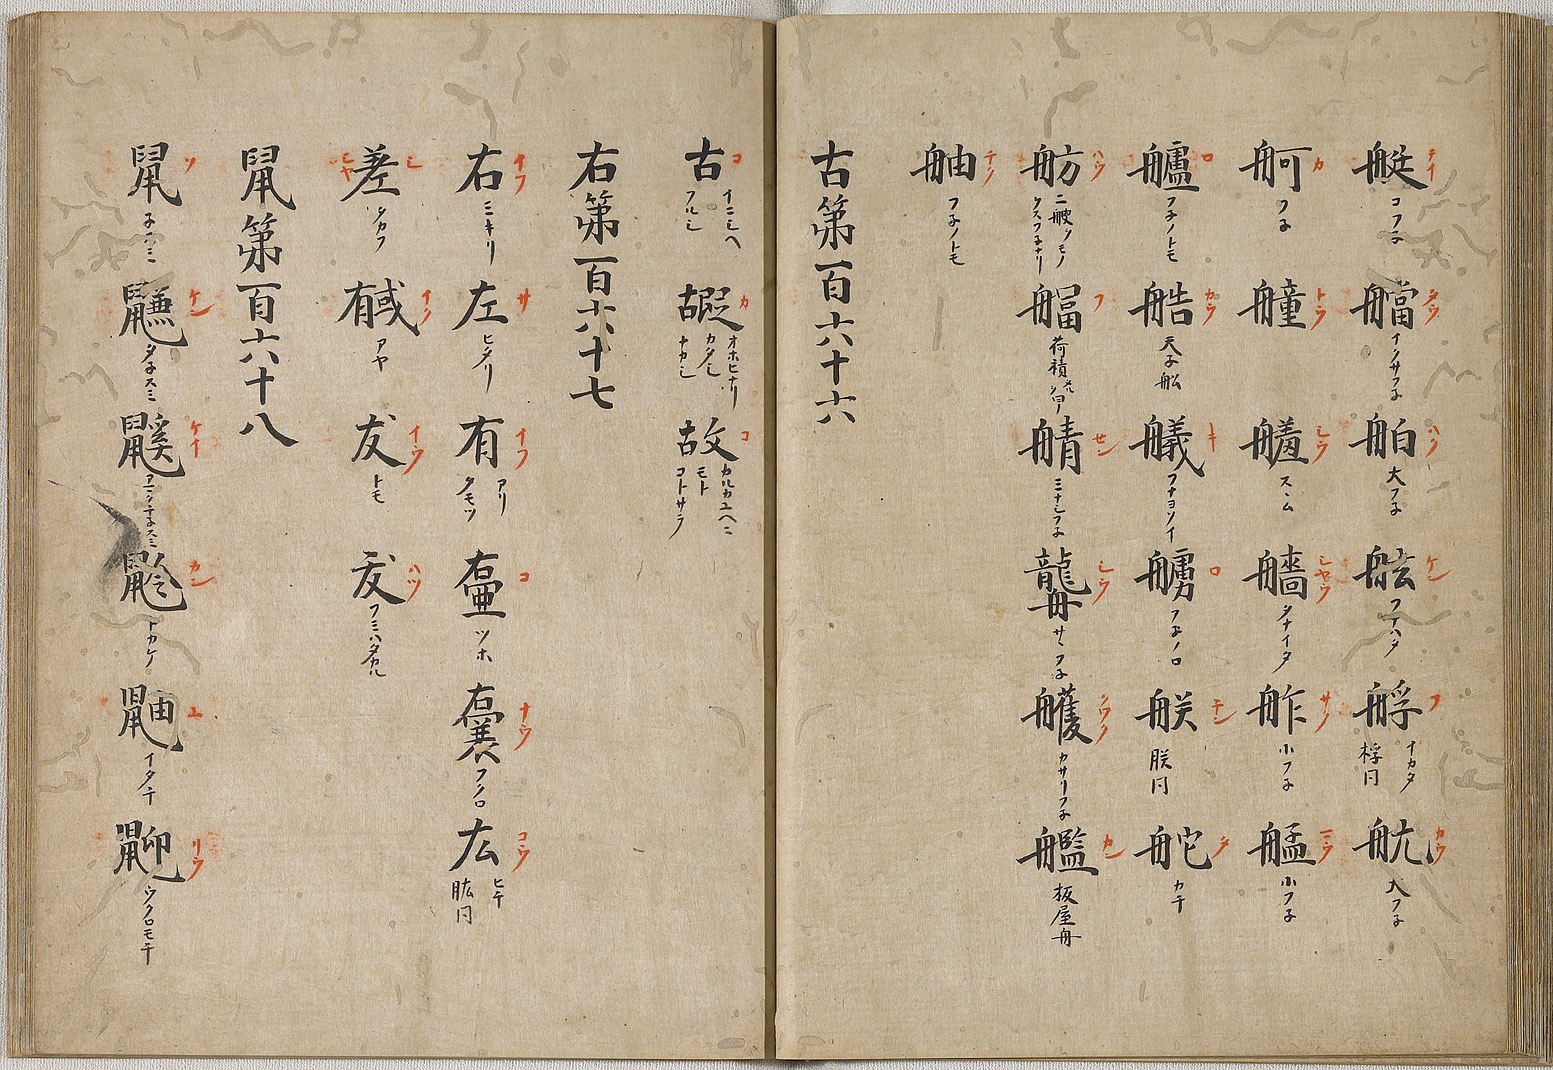 艇 テイ コフネ
艡 タウ イクサフネ
舶 ハク 大フネ
舷 ケン フナハタ
艀 フ イカタ 桴同
航 カウ 大フネ
舸 カ フネ
艟 トウ
艗 スゝム
艢 シヤウ
舴 サク 小フネ
艋 ミウ 小フネ
艫 ロ フネノトモ
艁 カウ 天子舩
艤 キ フナヨソイ
艣 ロ フネノロ
朕同
舵 タ カチ
舫 ハウ 二艘ノモノ
フ 荷積
セン
龍舟
カサリフネ
艦 カン 板屋舟
舳 チク フネノトモ
古第百六十六
古 コ イニシヘ フルシ
嘏 カ オホヒナリ カタシ ナカシ
故 コ カルカユヘニ モト コトサラ
右第百六十七
右 イフ ミキリ
左 サ ヒタリ
有 イフ アリ タモツ
壷 コ ツホ
嚢 ナウ フクロ
厷 コウ ヒチ 肱同
差 シ シヤ タカフ
戫 イク アヤ
友 イウ トモ
犮 ハツ フミハタカル
鼠第百六十八
鼠 ソ ネスミ
鼸 ケン
鼷 ケイ
カン トカケ
鼬 ユ イタチ
リウ ウクロモチ